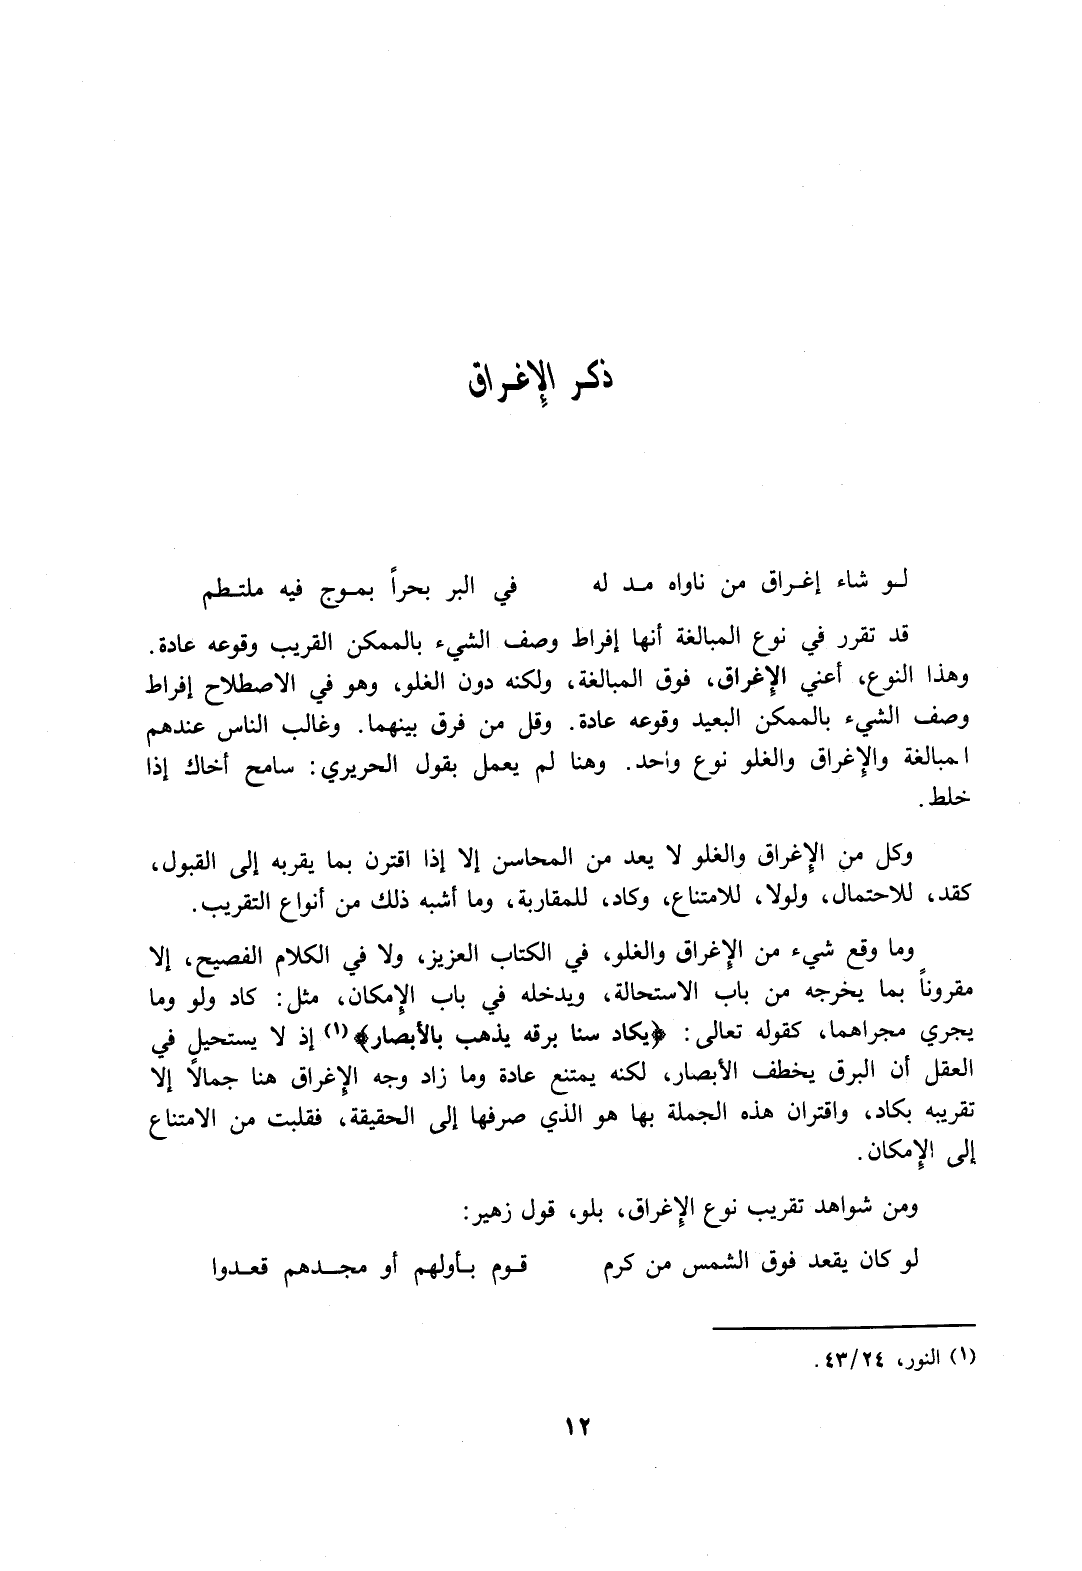 ذكـر الإغـراق
لـو شاء إغـراق من ناواه مـد له في البر بحراً بمـوج فيه ملتـطم
قد تقرر في نوع المبالغة أنها إفراط وصف الشيء بالممكن القريب وقوعه عادة.
وهذا النوع، أعني الإغراق، فوق المبالغة، ولكنه دون الغلو، وهو في الاصطلاح إفراط
وصف الشيء بالممكن البعيد وقوعه عادة. وقل من فرق بينهما. وغالب الناس عندهم
المبالغة والإغراق والغلو نوع واحد. وهنا لم يعمل بقول الحريري: سامح أخاك إذا
خلط.
وكل من الإغراق والغلو لا يعد من المحاسن إلا إذا اقترن بما يقربه إلى القبول،
كقد، للاحتمال، ولولا، للامتناع، وكاد، للمقاربة، وما أشبه ذلك من أنواع التقريب.
وما وقع شيء من الإغراق والغلو، في الكتاب العزيز، ولا في الكلام الفصيح، إلا
مقروناً بما يخرجه من باب الاستحالة، ويدخله في باب الإمكان، مثل: كاد ولو وما
يجري مجراهما، كقوله تعالى: ﴿يكاد سنا برقه يذهب بالأبصار﴾(١) إذ لا يستحيل في
العقل أن البرق يخطف الأبصار، لكنه يمتنع عادة وما زاد وجه الإغراق هنا جمالاً إلا
تقريبه بكاد، واقتران هذه الجملة بها هو الذي صرفها إلى الحقيقة، فقلبت من الامتناع
إلى الإمكان.
ومن شواهد تقريب نوع الإغراق، بلو، قول زهير:
لو كان يقعد فوق الشمس من كرم قـوم بـأولهم أو مجـدهم قعـدوا
(١) النور، ٤٣/٢٤.
١٢